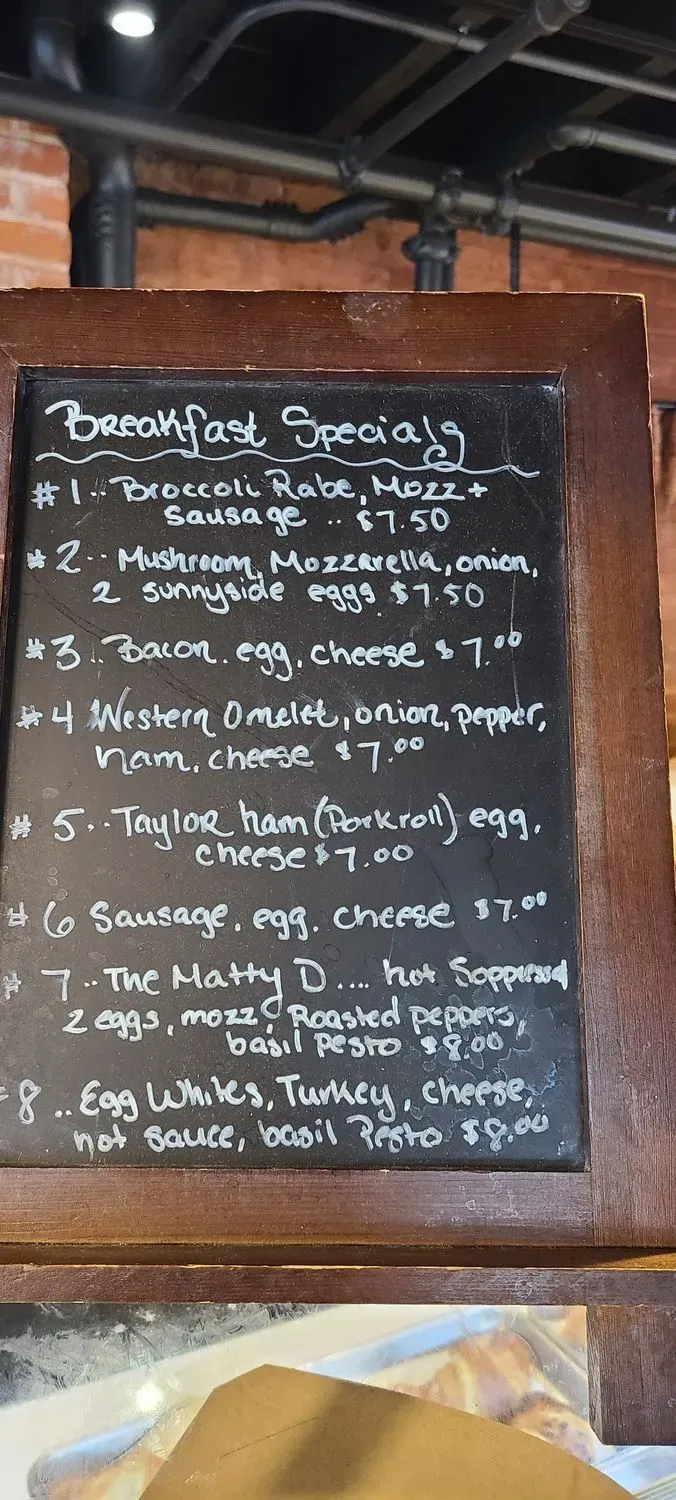 Breakfast Specials
#1.. Broccoli Rabe, Mozz +
sausage .. $7.50
#2.. Mushroom, Mozzarella, onion,
2 sunnyside eggs $7.50
#3.. Bacon. egg, cheese $7.00
#4 Western Omelet, onion, pepper,
ham, cheese $7.00
#5.. Taylor ham (Porkroll) egg,
cheese $7.00
#6 Sausage, egg, cheese $7.00
#7.. The Matty D .... hot
2 eggs, mozz, Roasted peppers,
basil pesto $8.00
#8.. Egg Whites, Turkey, cheese,
hot sauce, basil Pesto $8.00